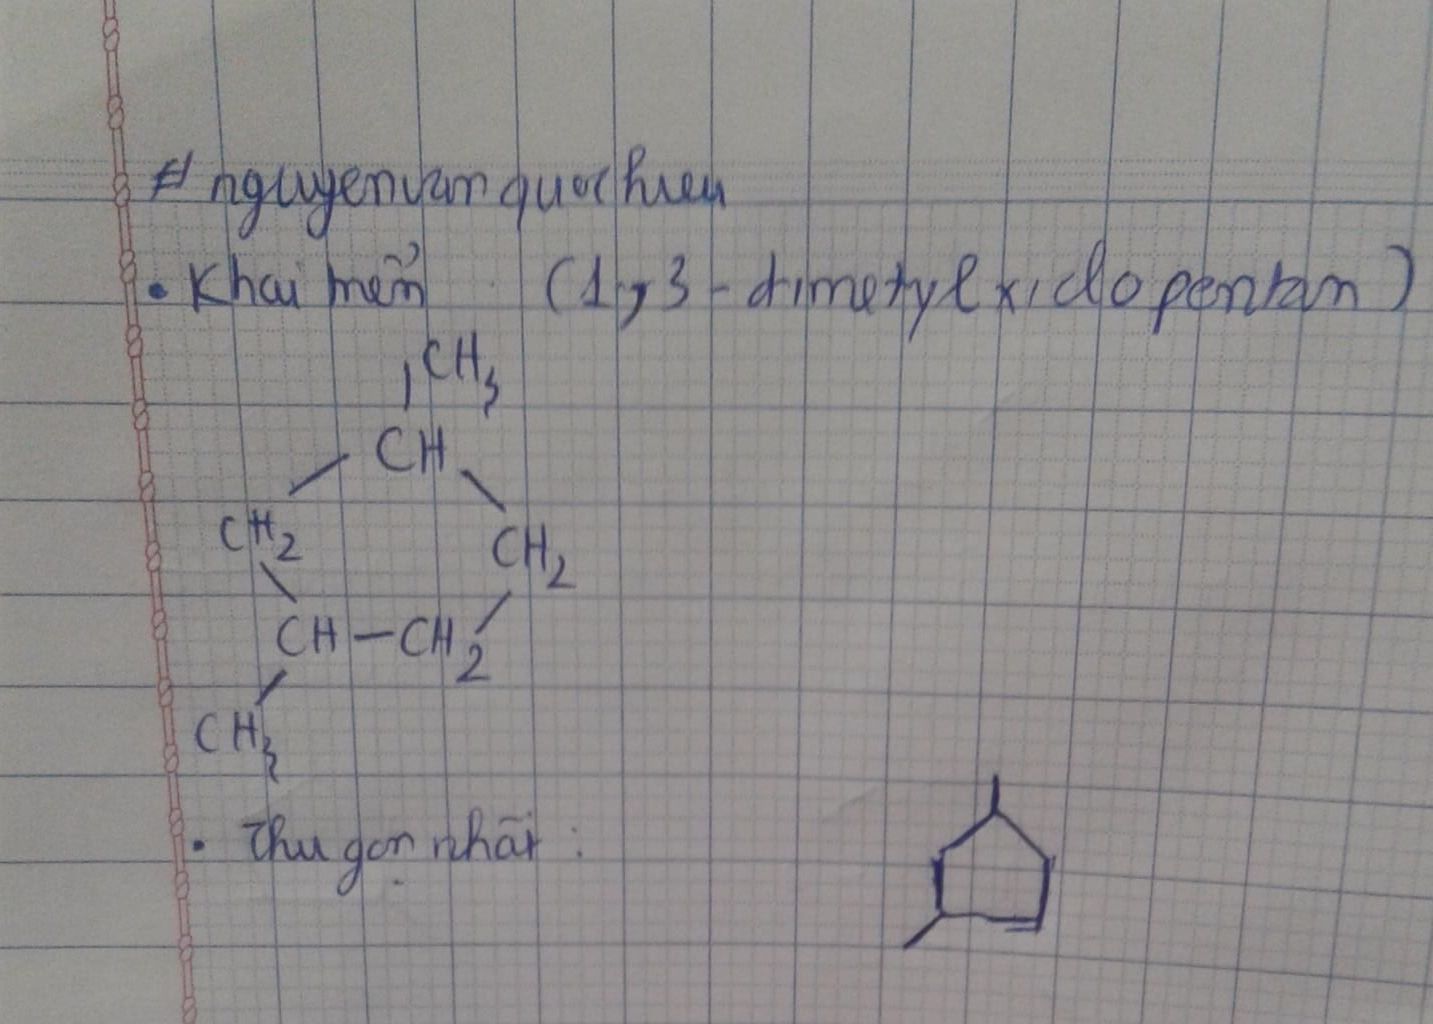 # nguyenvanquochieu
• Khai mển (1,3-dimetylxiclopentan)
CH3
CH
CH2 CH2
CH—CH2
CH3
• Thu gọn nhất :